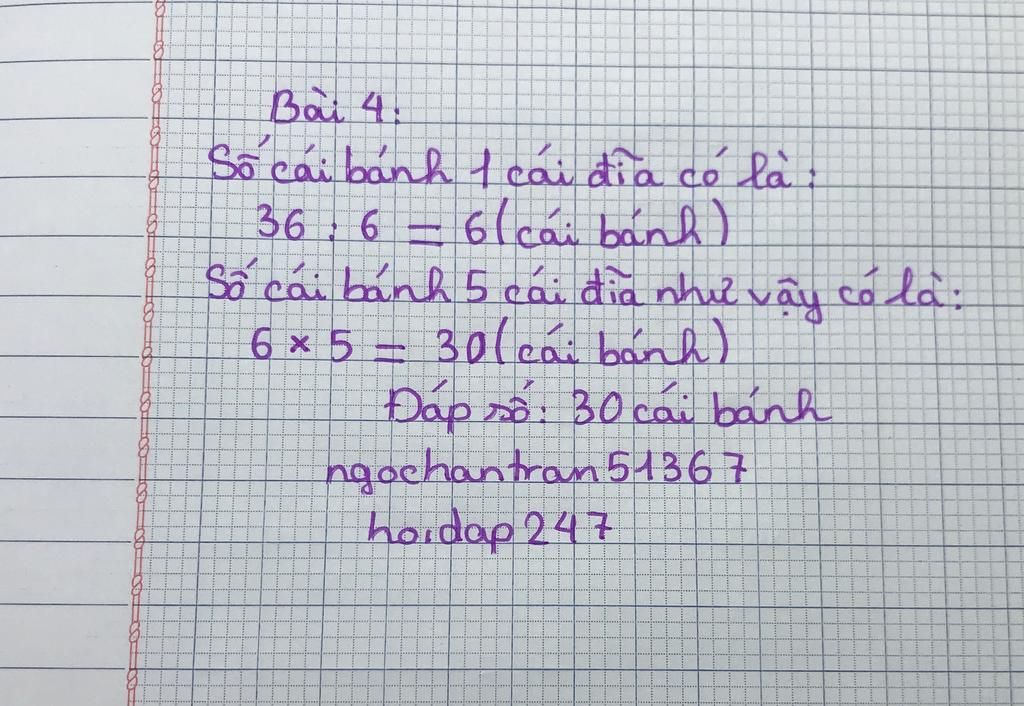 Bài 4:
Số cái bánh 1 cái đĩa có là:
36 : 6 = 6 (cái bánh)
Số cái bánh 5 cái đĩa như vậy có là:
6 × 5 = 30 (cái bánh)
Đáp số: 30 cái bánh
ngochantran51367
hoidap247